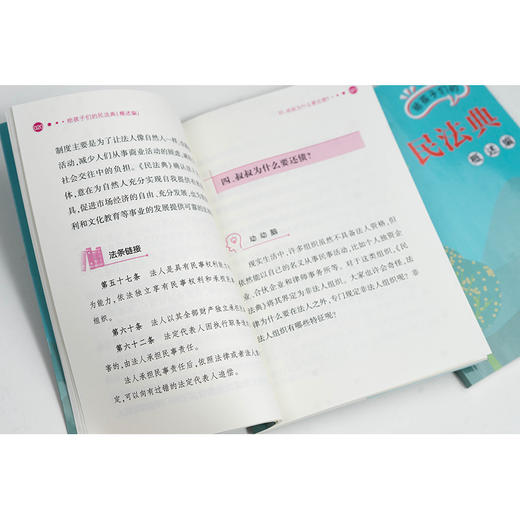 给孩子们的民法典(概述编)
制度主要是为了让法人像自然人一样
活动,减少人们从事商业活动的顾虑
社会交往中的负担。《民法典》确认法
体,意在为自然人充分实现自我提供有
具,促进市场经济的自由、充分发展,也为
利和文化教育等事业的发展提供可靠的
法条链接
第五十七条 法人是具有民事权利
为能力,依法独立享有民事权利和承担
组织。
第六十条 法人以其全部财产独立承担
第六十二条 法定代表人因执行职务
害的,由法人承担民事责任。
法人承担民事责任后,依照法律或者
定,可以向有过错的法定代表人追偿。
四、叔叔为什么要还债?
四、叔叔为什么要还债?
动动脑
现实生活中,许多组织虽然不具备法人资格,但
依然能以自己的名义从事民事活动,比如个人独资企
业、合伙企业和律师事务所等。对于这类组织,《民
法典》将其界定为非法人组织。大家也许会奇怪,法
律为什么要在法人之外,专门规定非法人组织呢?非
法人组织有哪些特征呢?
给孩子们的
民法典
概述编